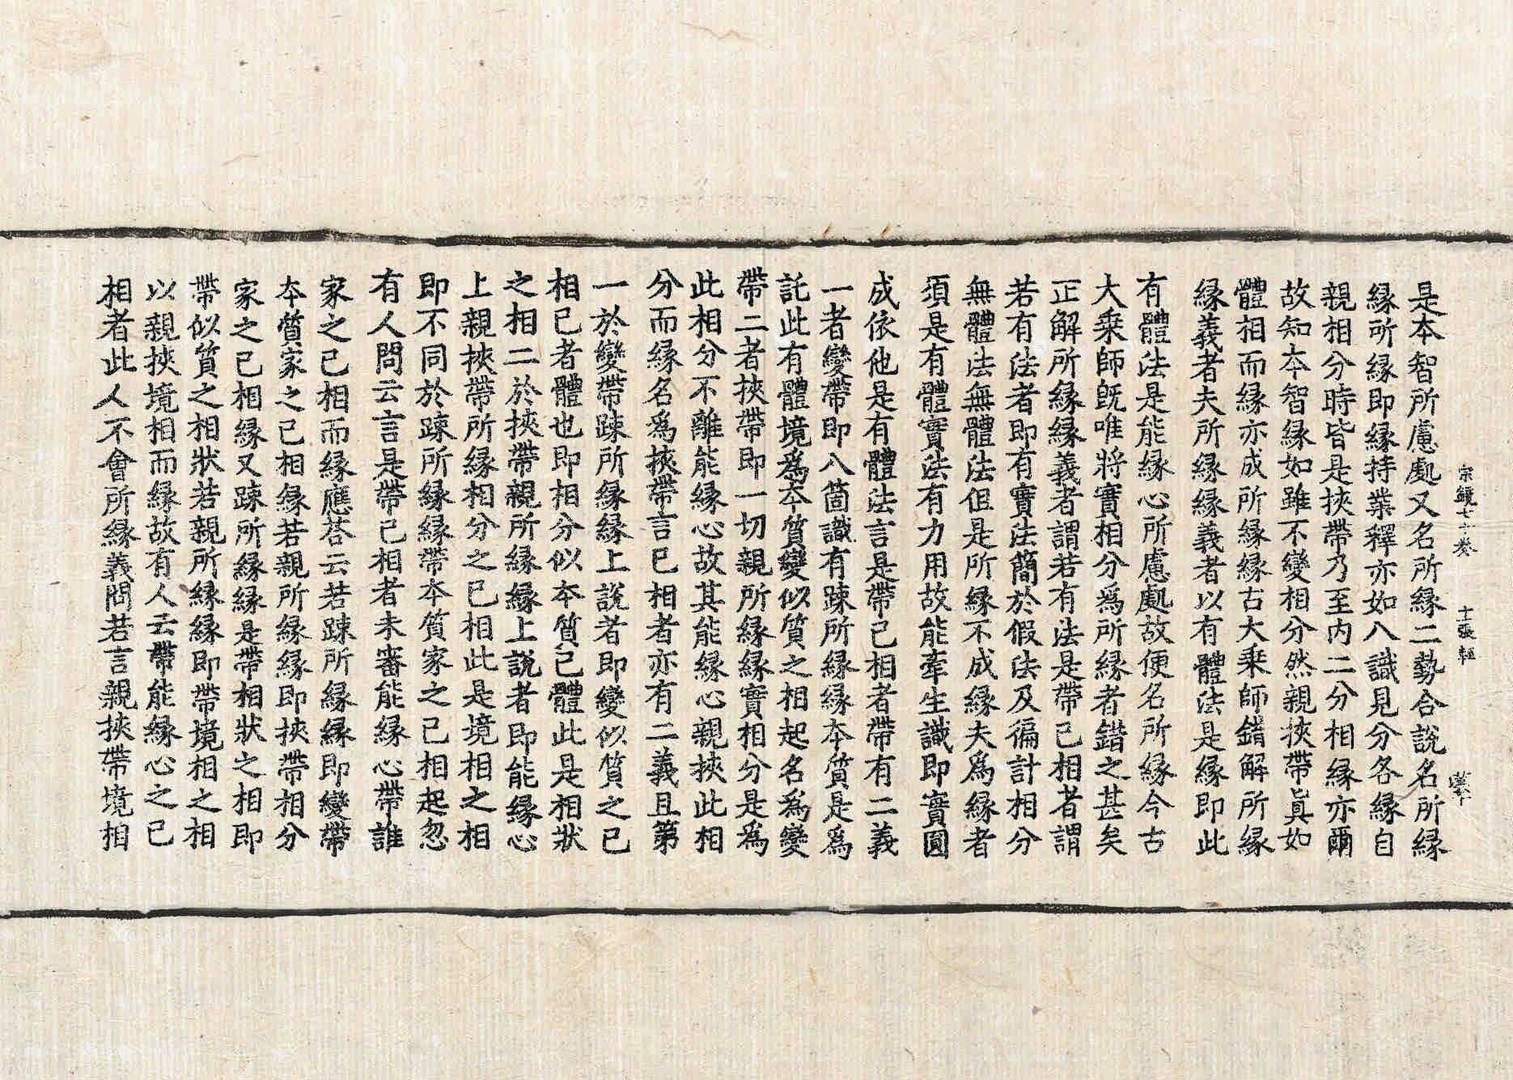 宗鏡七十卷 十一張 輕
是本智所慮處又名所縁二勢合說名所縁
縁所縁即縁持業釋亦如八識見分各縁自
親相分時皆是挾帶乃至内二分相縁亦爾
故知本智縁如雖不變相分然親挾帶眞如
體相而縁亦成所縁縁古大乗師錯解所縁
縁義者夫所縁縁義者以有體法是縁即此
有體法是能縁心所慮處故便名所縁今古
大乗師旣唯將實相分爲所縁者錯之甚矣
正解所縁縁義者謂若有法是帶已相者謂
若有法者即有實法簡於假法及徧計相分
無體法無體法但是所縁不成縁夫爲縁者
須是有體實法有力用故能牽生識即實圓
成依他是有體法言是帶已相者帶有二義
一者變帶即八箇識有踈所縁縁本質是爲
託此有體境爲本質變似質之相起名爲變
帶二者挾帶即一切親所縁縁實相分是爲
此相分不離能縁心故其能縁心親挾此相
分而縁名爲挾帶言已相者亦有二義且第
一於變帶踈所縁縁上說者即變似質之已
相已者體也即相分似本質已體此是相狀
之相二於挾帶親所縁縁上說者即能縁心
上親挾帶所縁相分之已相此是境相之相
即不同於踈所縁縁帶本質家之已相起忽
有人問云言是帶已相者未審能縁心帶誰
家之已相而縁應荅云若踈所縁縁即變帶
本質家之已相縁若親所縁縁即挾帶相分
家之已相縁又踈所縁縁是帶相狀之相即
帶似質之相狀若親所縁縁即帶境相之相
以親挾境相而縁故有人云帶能縁心之已
相者此人不會所縁義問若言親挾帶境相